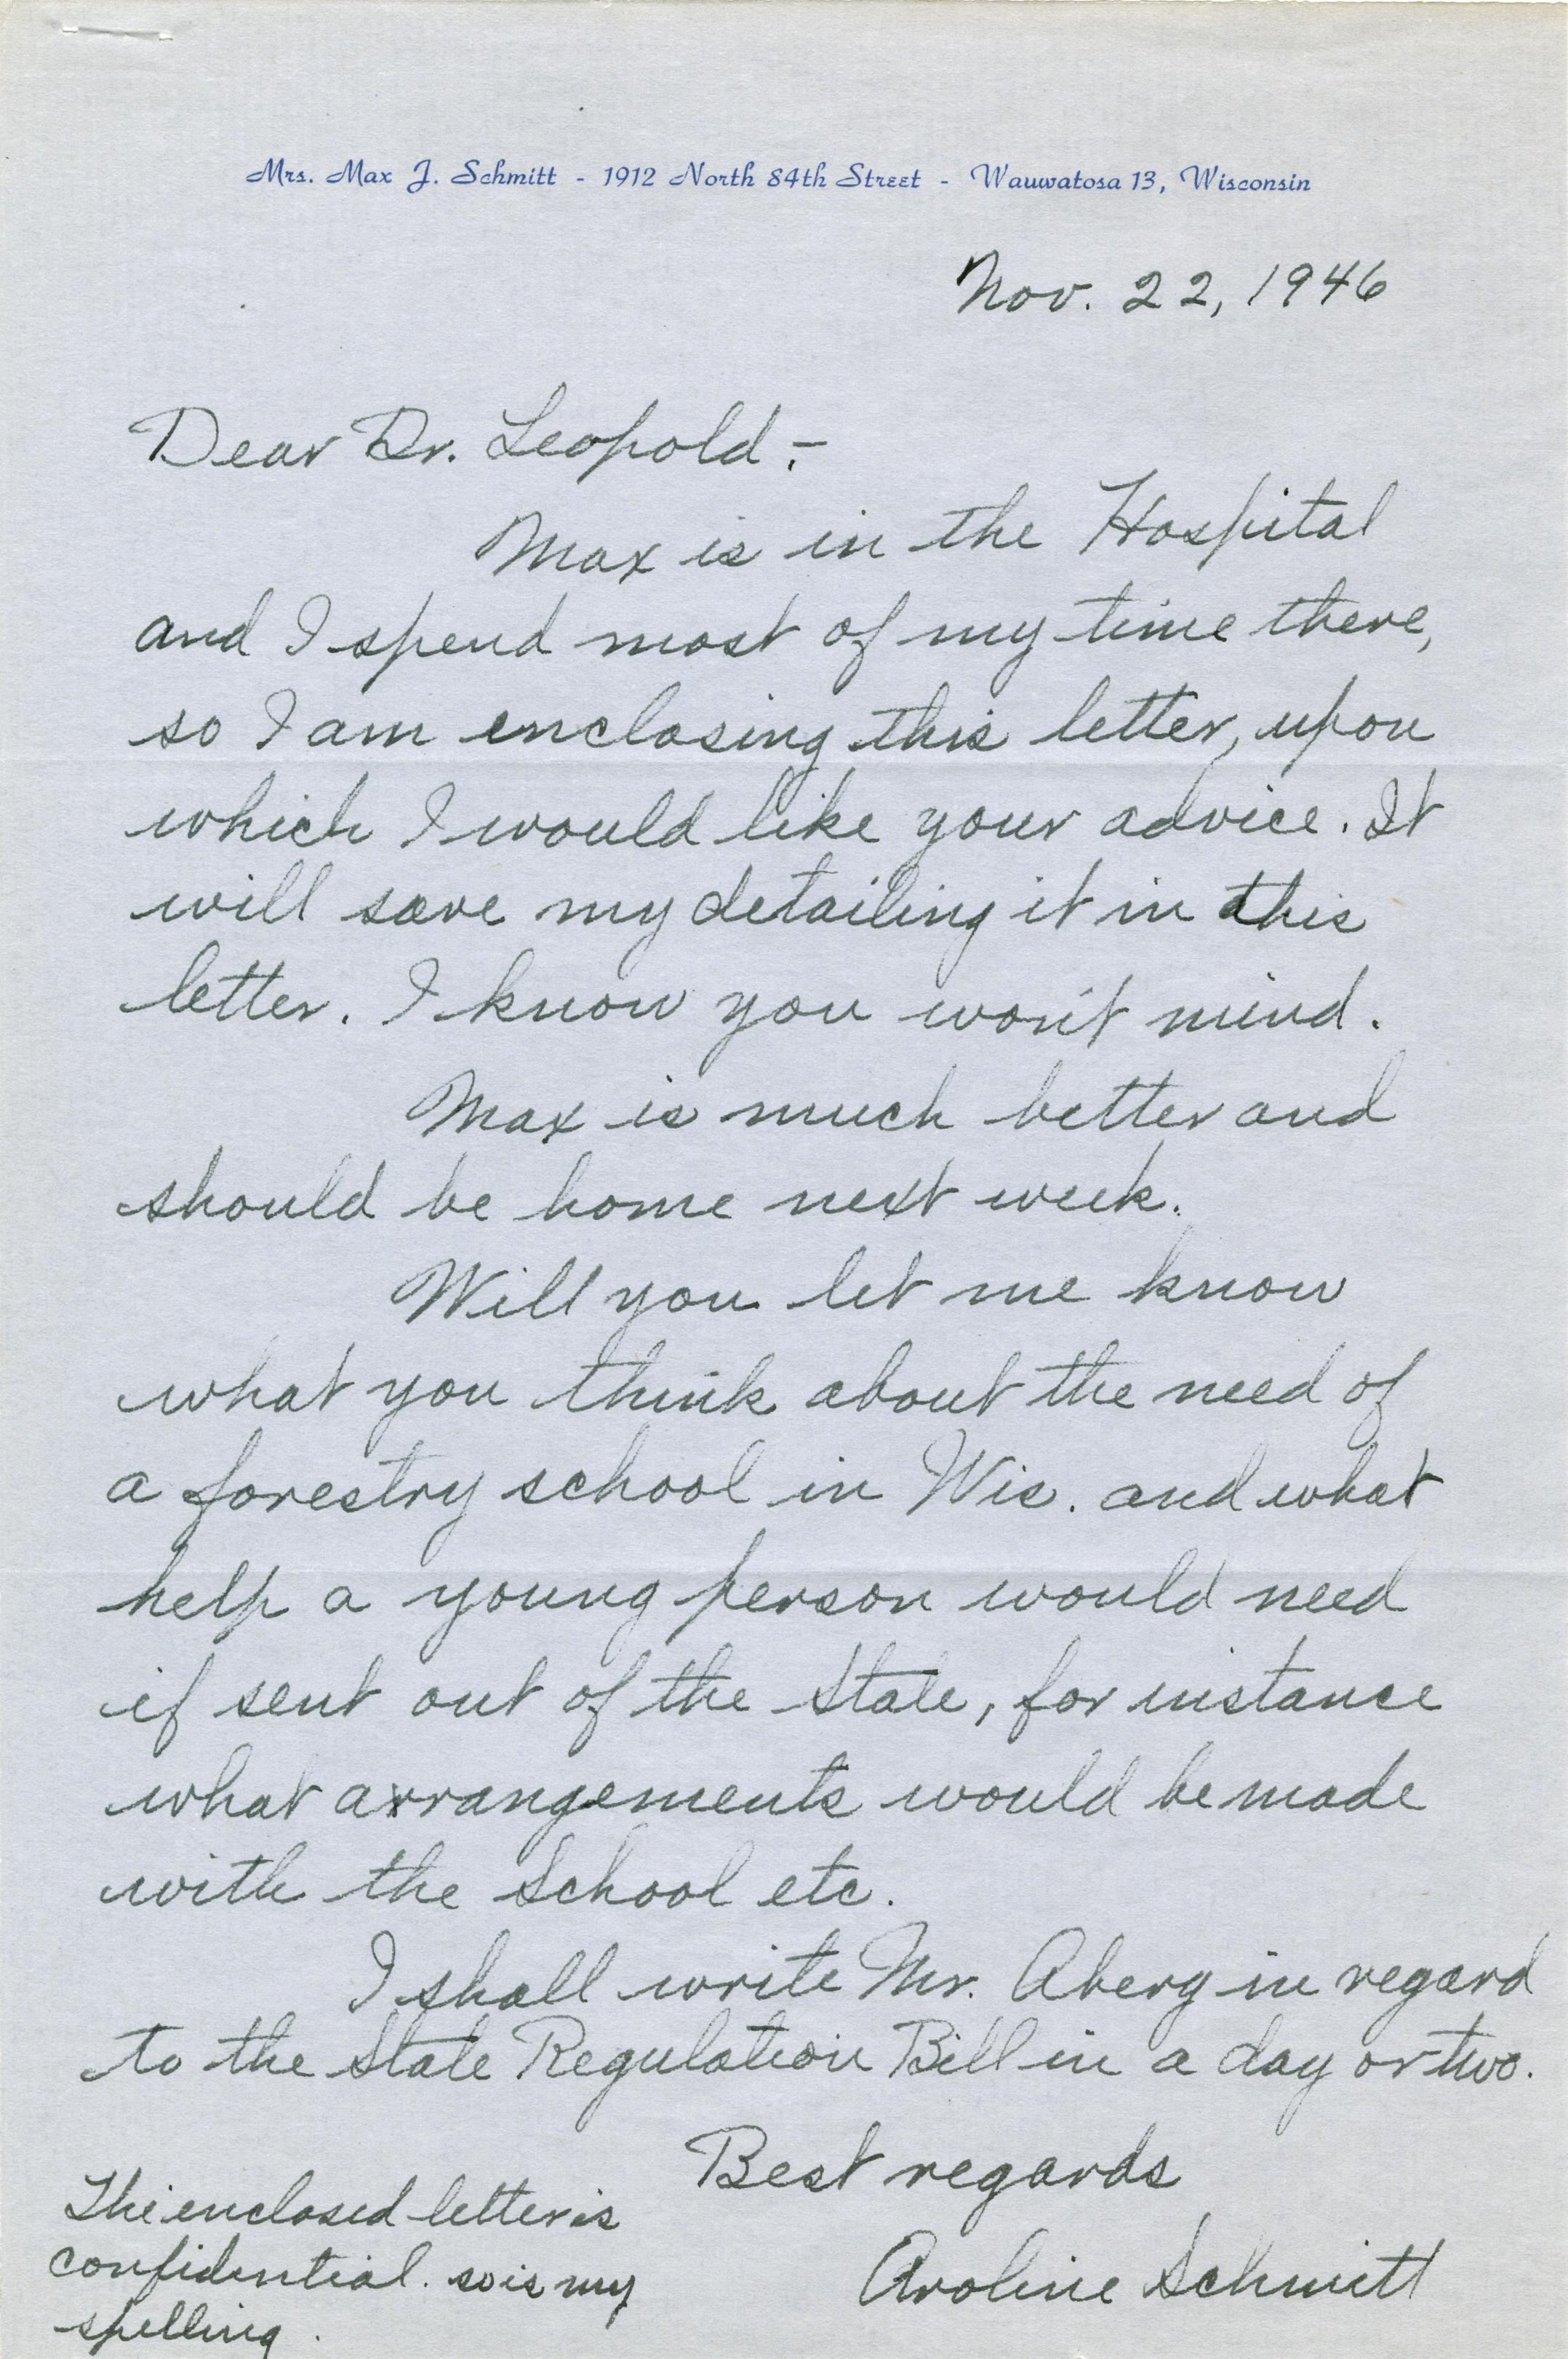 Mrs. Max J. Schmitt - 1912 North 84th Street - Wauwatosa 13, Wisconsin
Nov. 22, 1946
Dear Dr. Leopold,-
Max is in the Hospital
and I spend most of my time there,
so I am enclosing this letter, upon
which I would like your advice. It
will save my detailing it in this
letter. I know you won't mind.
Max is much better and
should be home next week.
Will you let me know
what you think about the need of
a forestry school in Wis. and what
help a young person would need
if sent out of the State, for instance
what arrangements would be made
with the School etc.
I shall write Mr. Aberg in regard
to the State Regulation Bill in a day or two.
Best regards
Aroline Schmitt
The enclosed letter is
confidential. so is my
spelling.